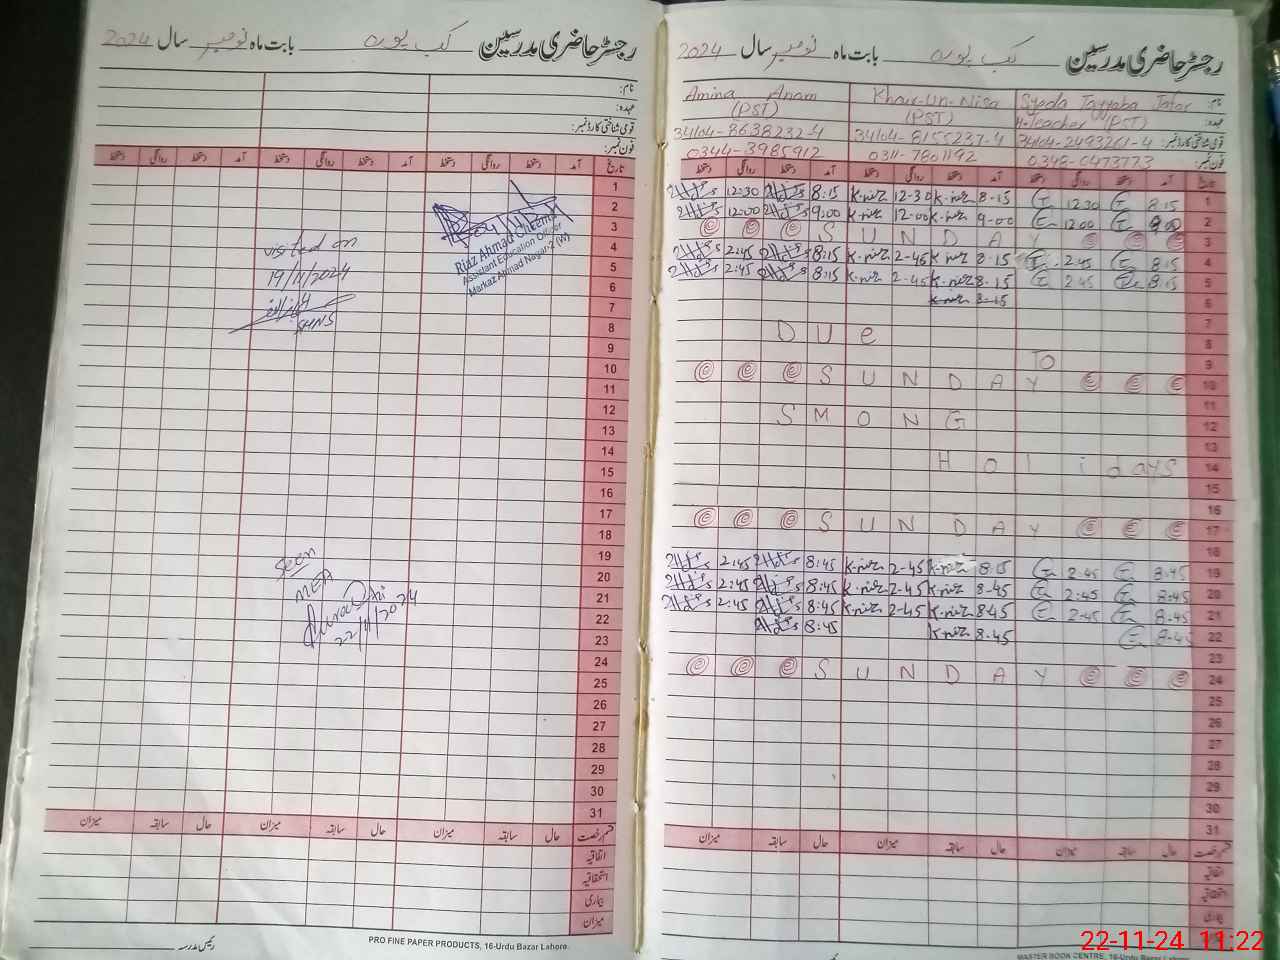 رجسٹر حاضری مدرسین بابت ماہ نومبر سال 2024
نام:
عہدہ:
قومی شناختی کارڈ نمبر:
فون نمبر:
تاریخ آمد دستخط روانگی دستخط آمد دستخط روانگی دستخط آمد دستخط روانگی دستخط
1
2
3
4
5
6
7
8
9
10
11
12
13
14
15
16
17
18
19
20
21
22
23
24
25
26
27
28
29
30
31
Riaz Ahmad Cheema
Assistant Education Officer
Markaz Ahmad Nagar-2 (W)
visited on
19/11/2024
seen
MEA
22/11/2024
قسم رخصت حال سابقہ میزان حال سابقہ میزان حال سابقہ میزان
اتفاقیہ
استحقاقیہ
بیماری
میزان
رئیس مدرسہ
PRO FINE PAPER PRODUCTS, 16-Urdu Bazar Lahore.
رجسٹر حاضری مدرسین بابت ماہ نومبر سال 2024
نام: Syeda Tayyaba Jafar Khair-Un-Nisa Amina Anam
عہدہ: H.Teacher (PST) (PST) (PST)
قومی شناختی کارڈ نمبر: 34104-2493261-4 34104-8155237-4 34104-8638232-4
فون نمبر: 0348-6473773 0311-7801192 0344-3985912
تاریخ آمد دستخط روانگی دستخط آمد دستخط روانگی دستخط آمد دستخط روانگی دستخط
12:30 8:15 K-nisa 12-30 K-nisa 8-15 12 30 8 15 1
12:00 9:00 K-nisa 12-00 K-nisa 9-00 12 00 9 00 2
S U N D A Y 3
2:45 8:15 K-nisa 2-45 K-nisa 8-15 2 45 8:15 4
2:45 8:15 K-nisa 2-45 K-nisa 8-15 2 45 8:15 5
K-nisa 8-15 6
7
D U e 8
To 9
S U N D A Y 10
11
S M O N G 12
13
H o l i d a y s 14
15
16
S U N D A Y 17
18
2:45 8:45 K-nisa 2-45 K-nisa 8-15 2-45 8-45 19
2:45 8:45 K-nisa 2-45 K-nisa 8-45 2:45 8:45 20
2:45 8:45 K-nisa 2-45 K-nisa 8-45 2-45 8-45 21
8:45 K-nisa 8-45 8-45 22
23
S U N D A Y 24
25
26
27
28
29
30
31
قسم رخصت حال سابقہ میزان حال سابقہ میزان حال سابقہ میزان
اتفاقیہ
استحقاقیہ
بیماری
MASTER BOOK CENTRE, 16-Urdu Bazar Lahore
22-11-24 11:22